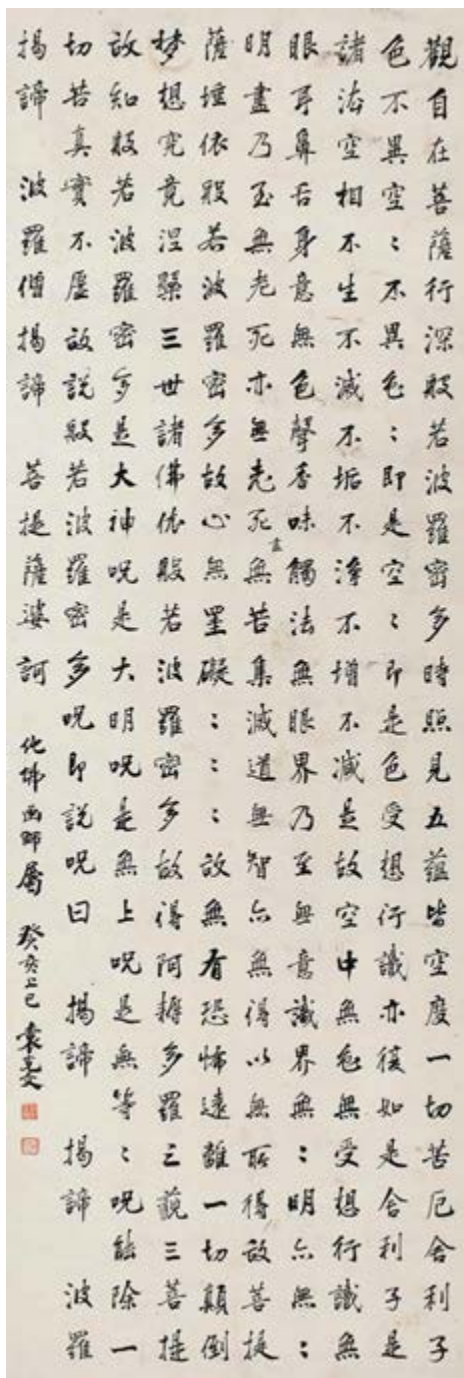 觀自在菩薩行深般若波羅密多時照見五蘊皆空度一切苦厄舍利子
色不異空〻不異色〻即是空〻即是色受想行識亦復如是舍利子是
諸法空相不生不滅不垢不淨不增不減是故空中無色無受想行識無
眼耳鼻舌身意無色聲香味觸法無眼界乃至無意識界無〻明亦無〻
明盡乃至無老死亦無老死盡無苦集滅道無智亦無得以無所得故菩提
薩埵依般若波羅密多故心無罣礙〻〻〻故無有恐怖遠離一切顛倒
梦想究竟涅槃三世諸佛依般若波羅密多故得阿耨多羅三藐三菩提
故知般若波羅密多是大神呪是大明呪是無上呪是無等〻呪能除一
切苦真實不虛故說般若波羅密多呪即說呪曰 揭諦 揭諦 波羅
揭諦 波羅僧揭諦 菩提薩婆訶 化佛画師屬 癸亥上巳 袁克文